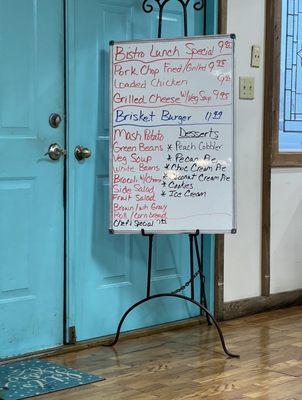 Bistro Lunch Special 9.95
Pork Chop Fried/Grilled 9.95
Loaded Chicken
Grilled Cheese w/Veg Soup 9.95
Brisket Burger 11.95
Mash Potato
Green Beans
Veg Soup
White Beans
Brocoli w/Cheese
Side Salad
Fruit Salad
Brown/wh Gravy
Roll/cornbread
Chef's Special
Desserts
* Peach Cobbler
* Pecan Pie
* Choc Cream Pie
* Coconut Cream Pie
* Cookies
* Ice Cream